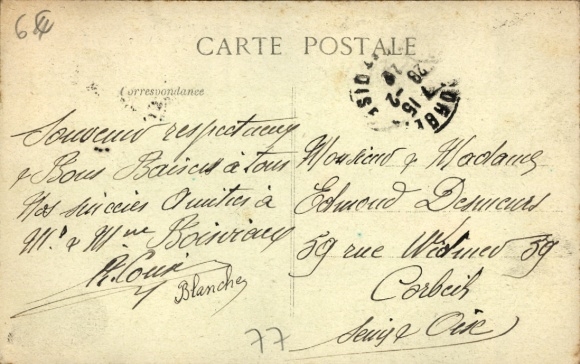 64
CARTE POSTALE
Correspondance
Souvenir respectueux
& Bons Baisers à tous
Nos sincères Amitiés à
Mr & Mme
Blanche
Monsieur & Madame
Edmond Desmeurs
59 rue Widmer 59
Corbeil
Seine & Oise
77